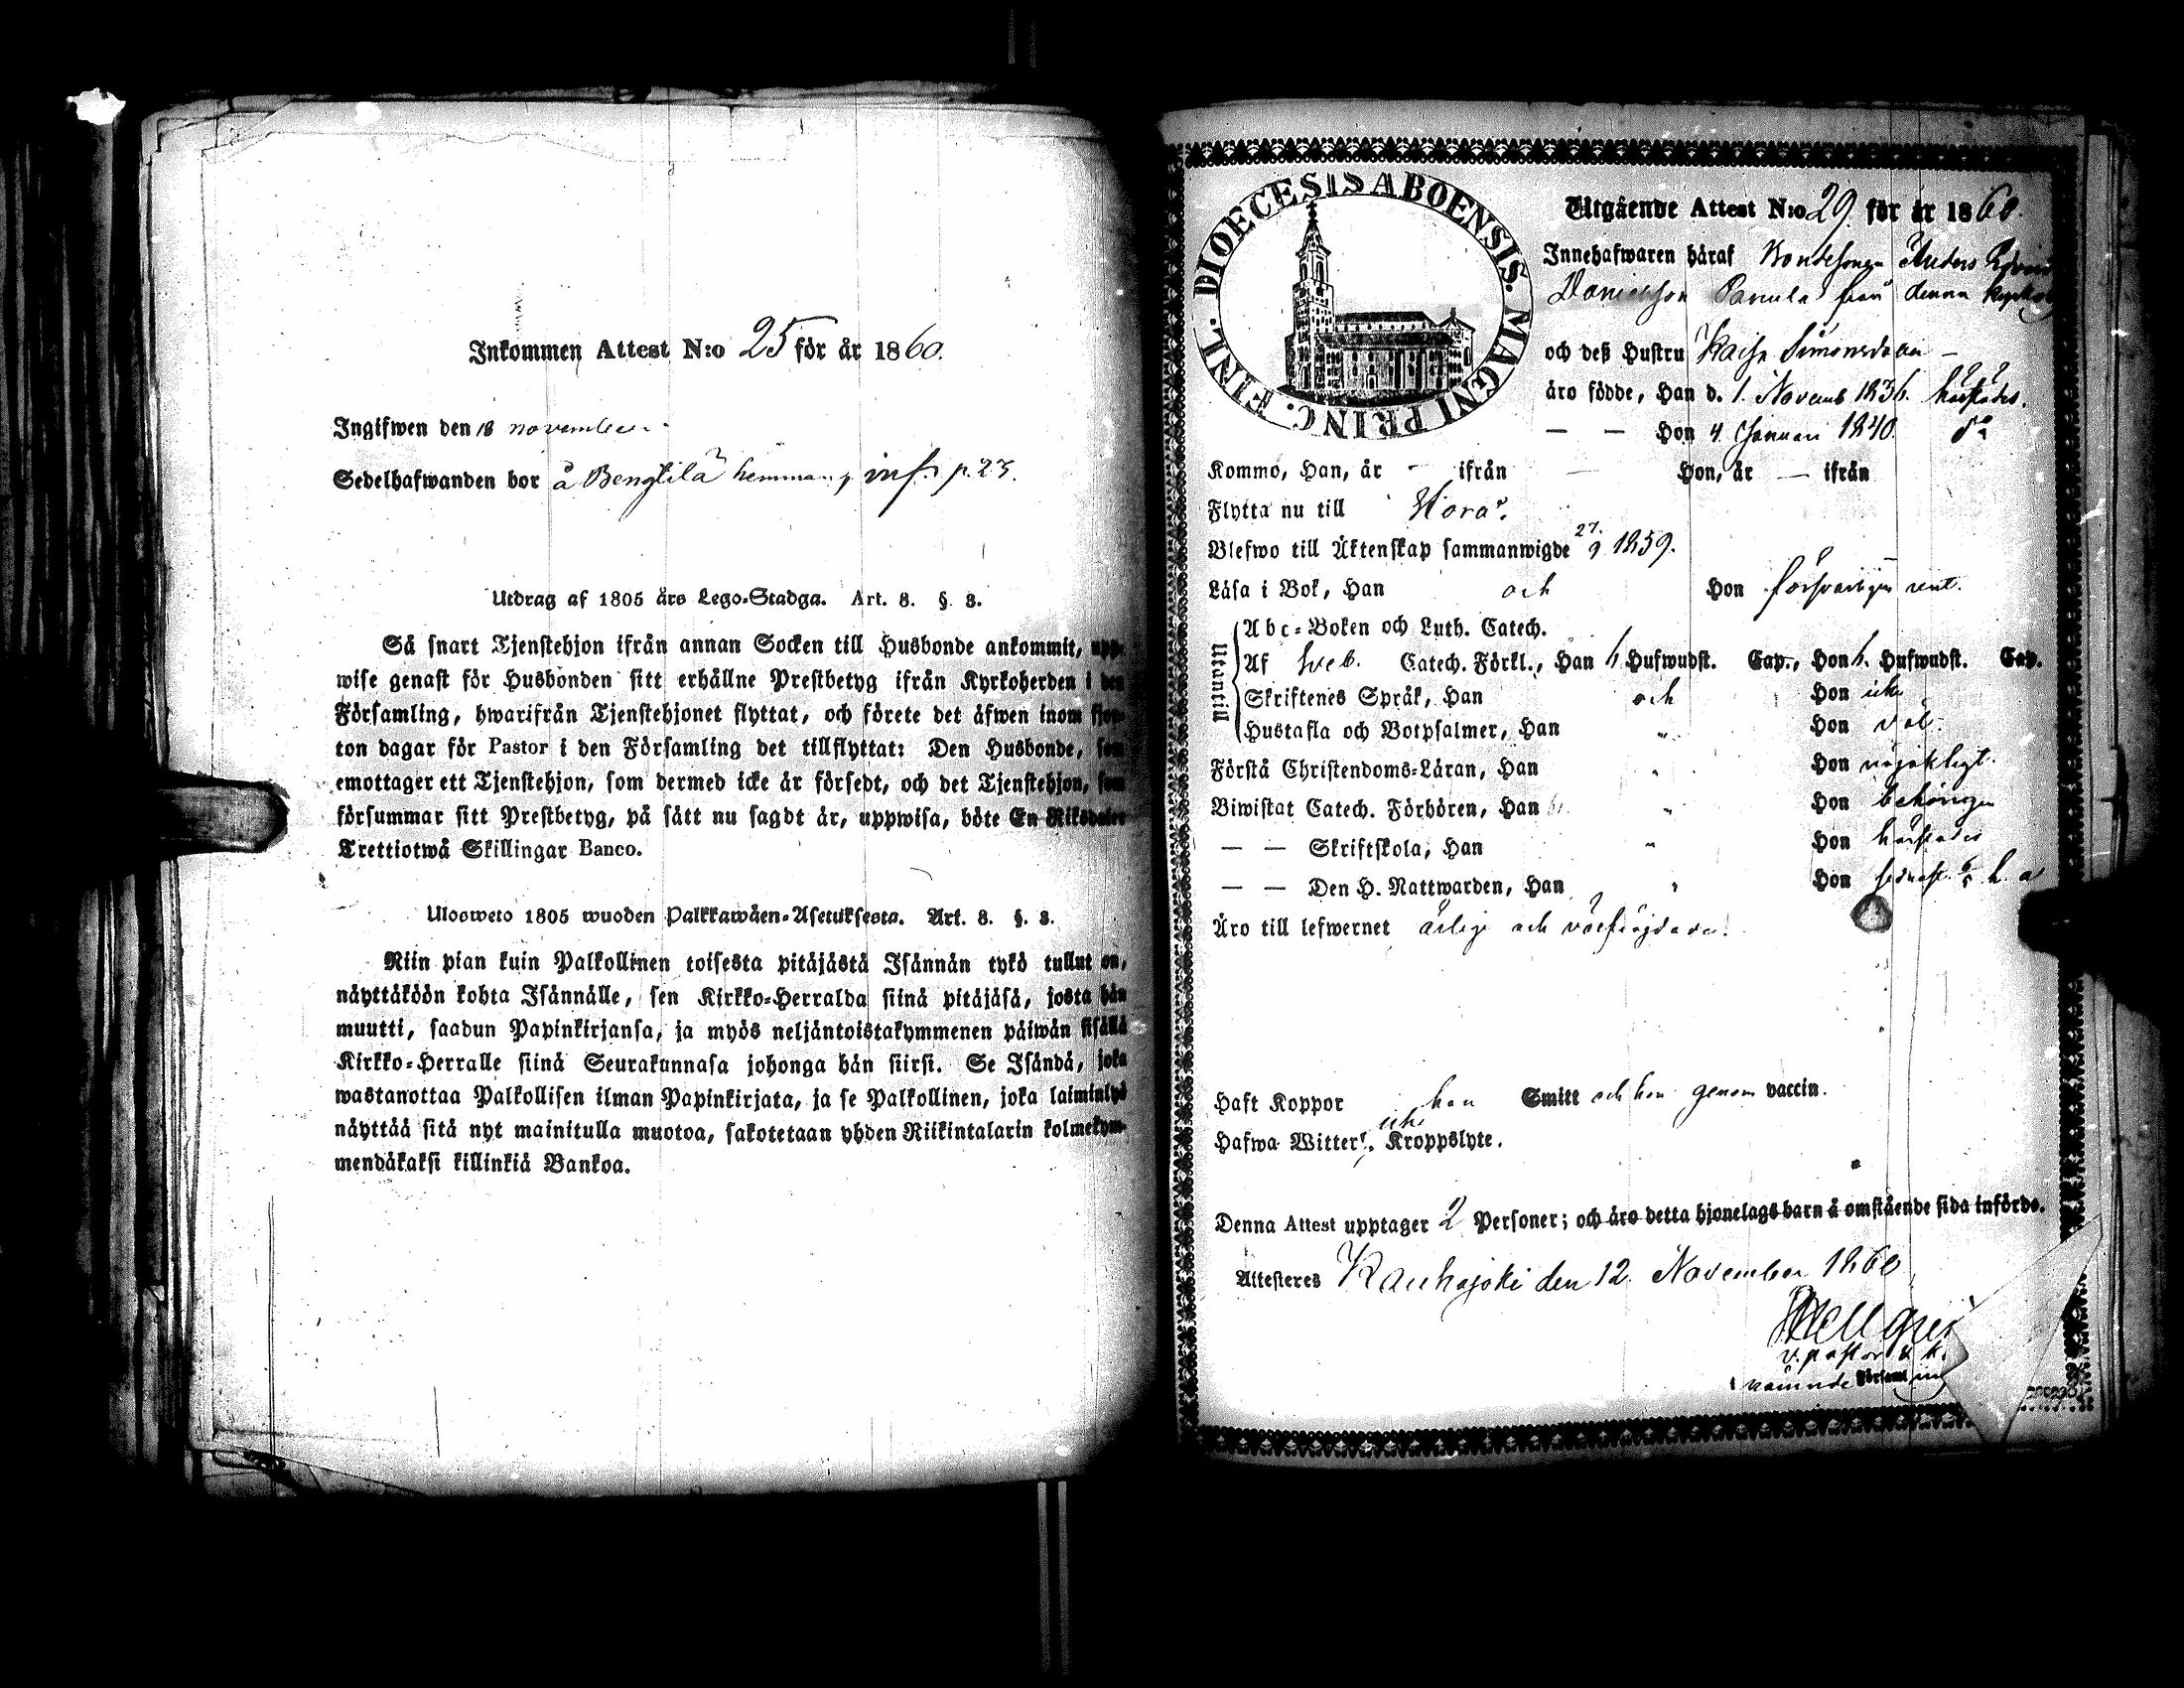 Inkommen Attest N:o 25 för år 1860.
Ingifwen den 18 november
Sedelhafwanden bor å Bengtilä hemman, inf. p. 23.
Utdrag af 1805 års Lego-Stadga. Art. 8. §. 3.
Så snart Tjenstehjon ifrån annan Socken till Husbonde ankommit, upp-
wise genast för Husbonden sitt erhållne Prestbetyg ifrån Kyrkoherden i den
Församling, hwarifrån Tjenstehjonet flyttat, och förete det äfwen inom fjor-
ton dagar för Pastor i den Församling det tillflyttat: Den Husbonde, som
emottager ett Tjenstehjon, som dermed icke är försedt, och det Tjenstehjon, som
försummar sitt Prestbetyg, på sätt nu sagdt är, uppwisa, böte En Riksdaler
Trettiotwå Skillingar Banco.
Ulosweto 1805 wuoden Palkkawäen-Asetuksesta. Art. 8. §. 3.
Niin pian kuin Palkollinen toisesta pitäjästä Isännän tykö tullut on,
näyttäköön kohta Isännälle, sen Kirkko-Herralda siinä pitäjäsä, josta hän
muutti, saadun Papinkirjansa, ja myös neljäntoistakymmenen päiwän sisällä
Kirkko-Herralle siinä Seurakunnasa johonga hän siirsi. Se Isändä, joka
wastanottaa Palkollisen ilman Papinkirjata, ja se Palkollinen, joka laiminlyö
näyttää sitä nyt mainitulla muotoa, sakotetaan yhden Riikintalarin kolmekym-
mendäkaksi killinkiä Bankoa.
DIOECESIS ABOENSIS. MAGNI PRINC. FINL.
Utgående Attest N:o 29. för år 1860.
Innehafwaren häraf Bondesonen Anders
Danielsson Panula från denna
och deß Hustru Kaisa Simonsdoter –
äro födde, Han d. 1. Novemb 1836. härstädes.
— — Hon 4 Januari 1840. do
Kommo, Han, år – ifrån — Hon, år — ifrån
Flytta nu till Storå.
Blefwo till Äktenskap sammanwigde 27. 9 1859.
Läsa i Bok, Han och Hon försvarligen rent.
Utantill
Abc-Boken och Luth. Catech.
Af Sveb. Catech. Förkl., Han h. Hufwudst. Cap., Hon h. Hufwudst. Cap.
Skriftenes Språk, Han och Hon icke
Hustafla och Botpsalmer, Han " Hon väl.
Förstå Christendoms-Läran, Han " Hon nöjaktligt.
Biwistat Catech. Förhören, Han " Hon behörigen
— — Skriftskola, Han " Hon härstädes
— — Den H. Nattwarden, Han " Hon
Äro till lefwernet ärlige och välfrägdade.
Haft Koppor han Smitt och hon genom vaccin.
Hafwa Witterl. icke Kroppslyte.
Denna Attest upptager 2 Personer; och äro detta hjonelags barn å omstående sida införde.
Attesteres Kauhajoki den 12. November 1860
v. pastor
nämnde Församling